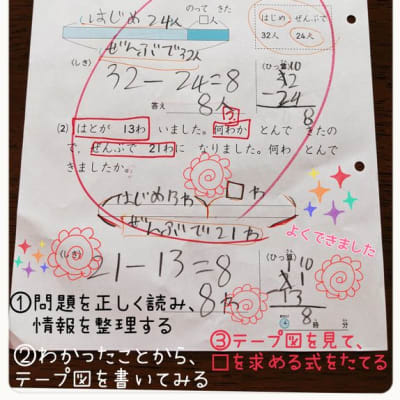 のって きた
はじめ 24人 □人
ぜんぶで32人
はじめ ぜんぶで
32人 24人
(しき)
32-24=8
答え 8人
(ひっ算)
10
32
-24
8
(2) はとが 13わ いました。何わか とんで きたの
で、ぜんぶで 21わに なりました。何わ とんで
きましたか。
はじめ13わ □わ
ぜんぶで21わ
よくできました
(しき)
21-13=8
8わ
(ひっ算)
10
21
13
8
時 分
①問題を正しく読み、
情報を整理する
②わかったことから、
テープ図を書いてみる
③テープ図を見て、
□を求める式をたてる